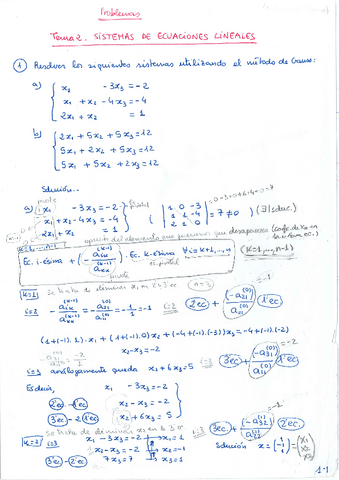 Problemas
Tema 2. SISTEMAS DE ECUACIONES LINEALES
① Resolver los siguientes sistemas utilizando el método de Gauss:
a) { x₂ - 3x₃ = -2
x₁ + x₂ - 4x₃ = -4
2x₁ + x₂ = 1
b) { 2x₁ + 5x₂ + 5x₃ = 12
5x₁ + 2x₂ + 5x₃ = 12
5x₁ + 5x₂ + 2x₃ = 12
Solución...
pivote
a) x₁ - 3x₃ = -2
x₁ + x₂ - 4x₃ = -4
2x₁ + x₂ = 1
| 1 0 -3
1 1 -4
2 1 0 | = 7 ≠ 0 (∃! soluc.)
opuesto del elemento que queremos que desaparezca
Ec. i-ésima + (- aᵢₖ⁽ᵏ⁻¹⁾ / aₖₖ⁽ᵏ⁻¹⁾) Ec. k-ésima ∀ i = k+1, ..., n (k = 1, ..., n-1)
pivote
k=1 Se trata de eliminar x₁ en 2 y 3 ec. n=3
i=2 - a₂₁⁽⁰⁾ / a₁₁⁽⁰⁾ = - 1/1 = -1 i=2 2ªec + (-a₂₁⁽⁰⁾ / a₁₁⁽⁰⁾) 1ªec
(1+(-1).1).x₁ + (1+(-1).0)x₂ + (-4+(-1).(-3))x₃ = -4+(-1).(-2)
x₂ - x₃ = -2
i=3 análogamente queda x₂ + 6x₃ = 5 i=3 3ªec + (-a₃₁⁽⁰⁾ / a₁₁⁽⁰⁾) 1ªec
Es decir, x₁ - 3x₃ = -2
2ªec - 1ªec x₂ - x₃ = -2
3ªec - 2·1ªec x₂ + 6x₃ = 5
Se trata de eliminar x₂ en la 3ª ec
k=2 i=3 x₁ - 3x₃ = -2 x₁ = 1 i=3 3ªec + (-a₃₂⁽¹⁾ / a₂₂⁽¹⁾) 2ªec
x₂ - x₃ = -2 x₂ = -1
3ªec - 2ªec 7x₃ = 7 x₃ = 1 Solución x =
1-1